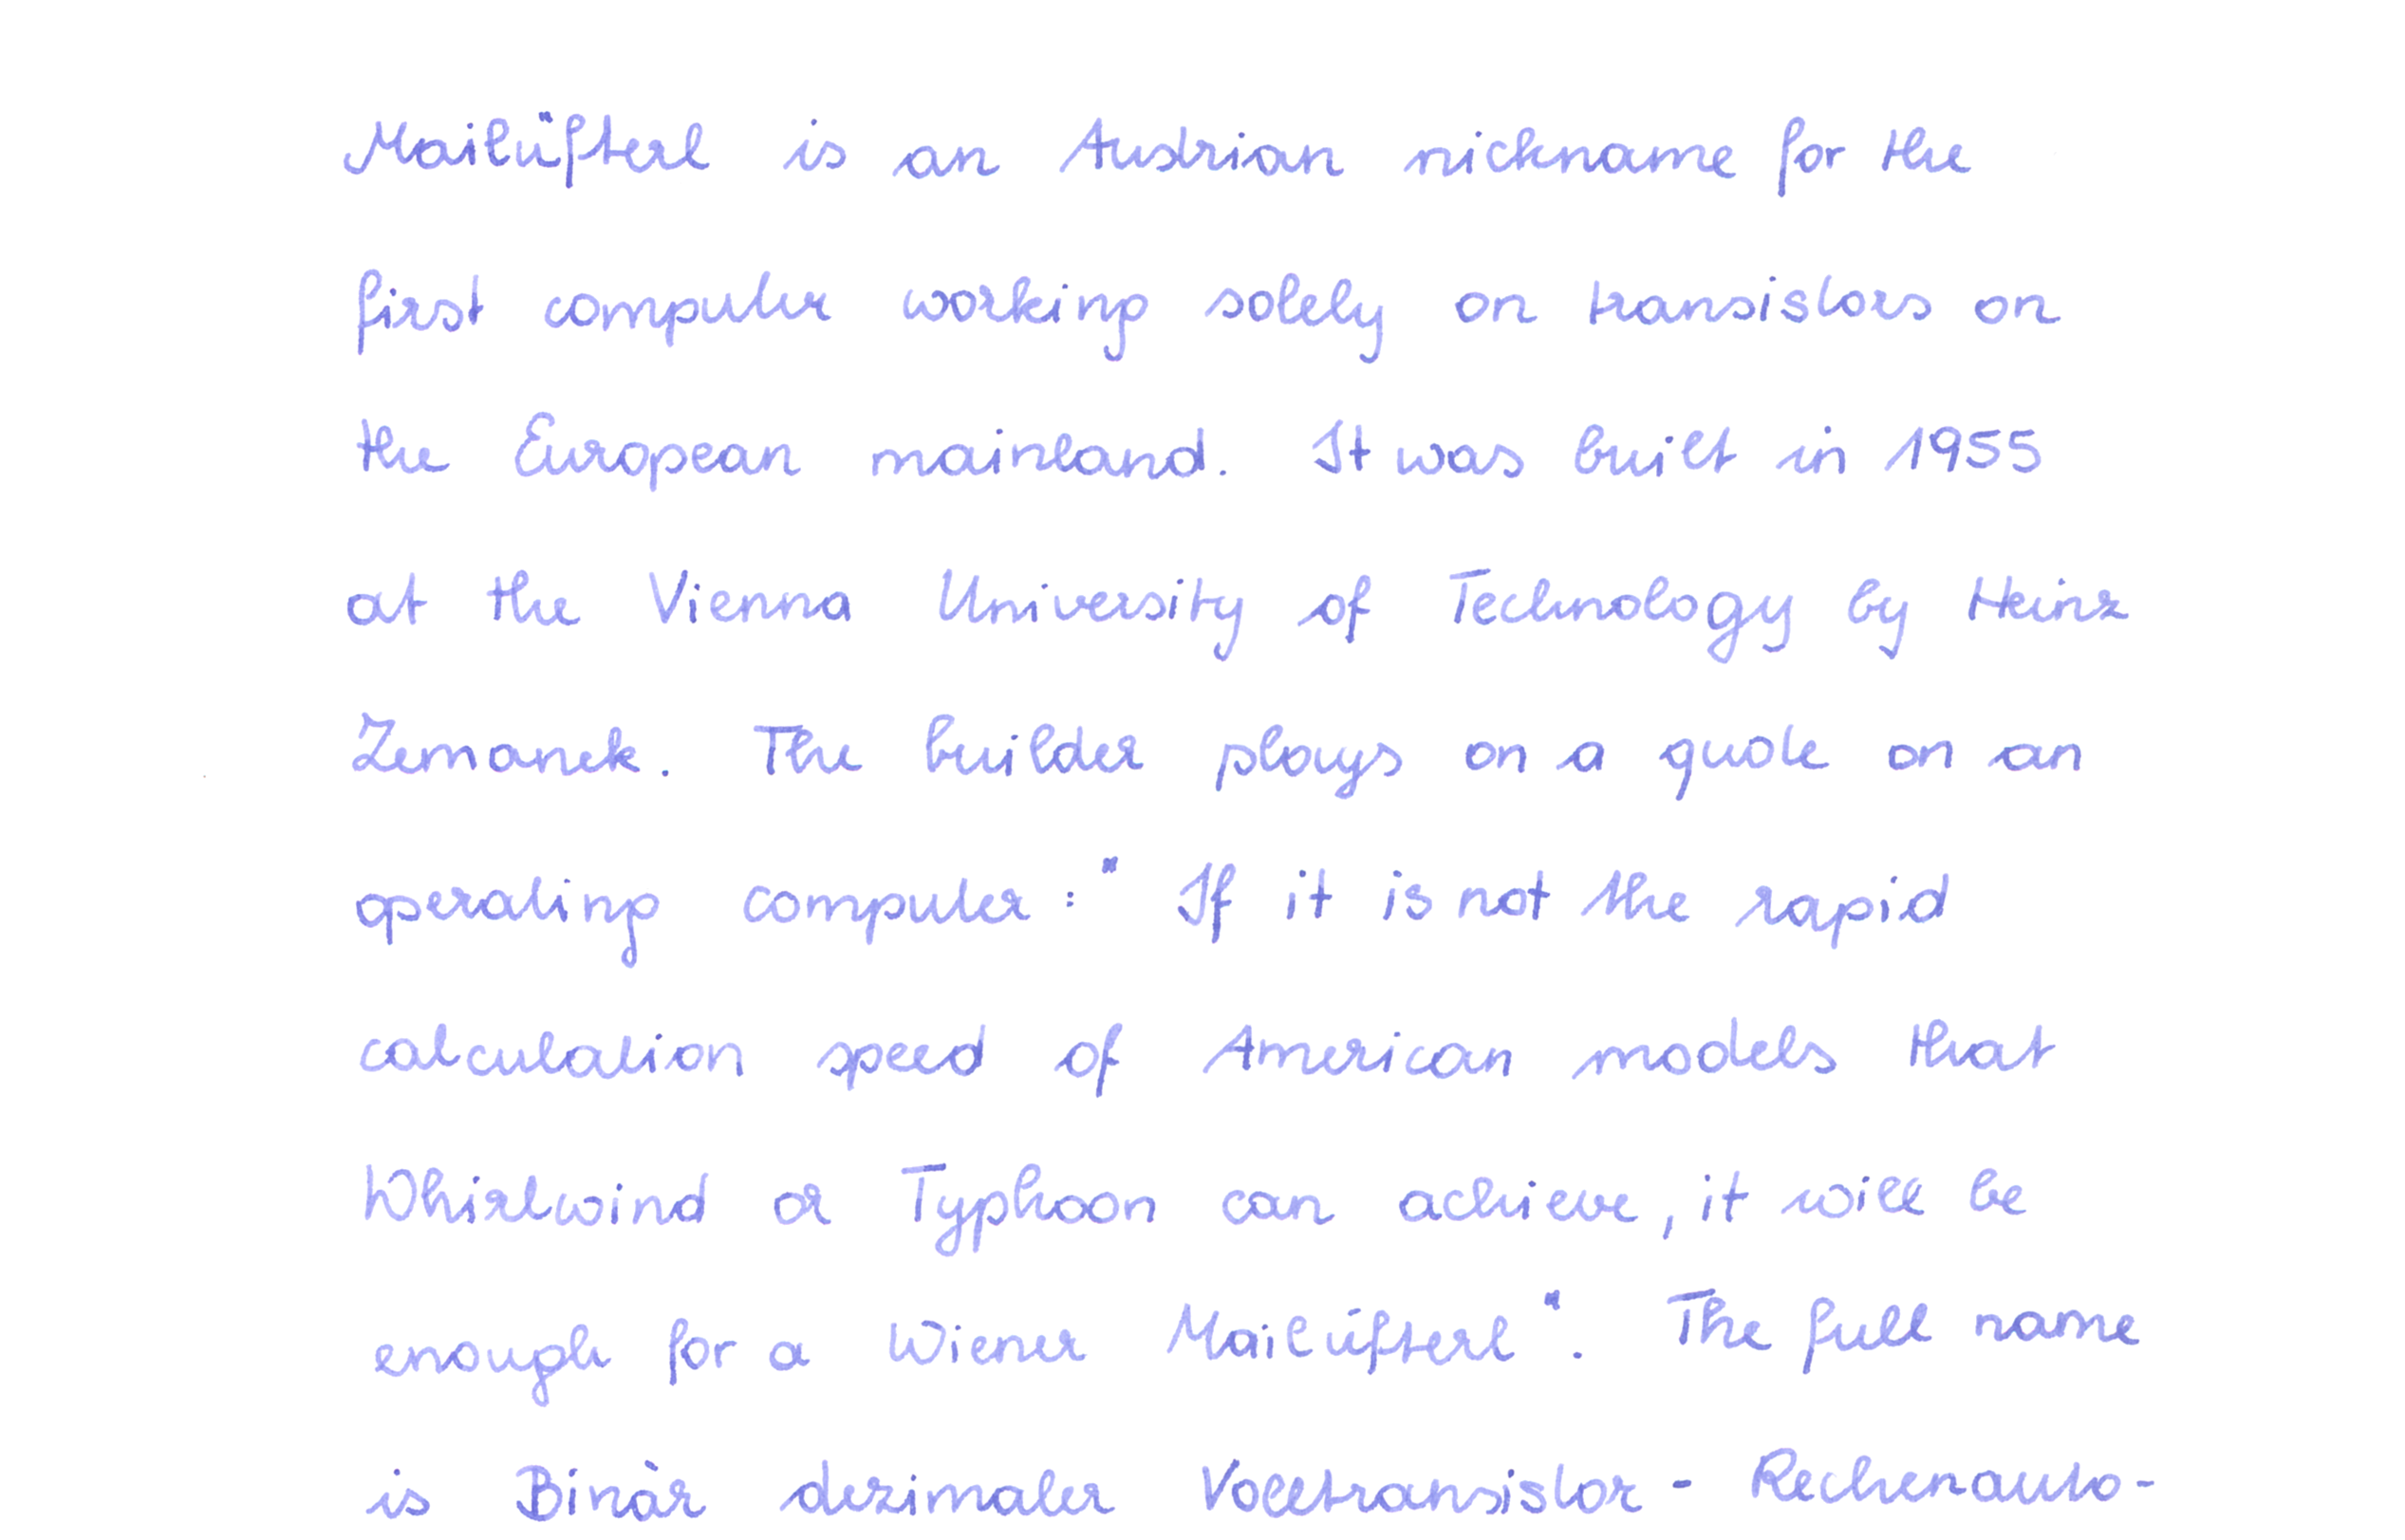 Mailüfterl is an Austrian nickname for the
first computer working solely on transistors on
the European mainland. It was built in 1955
at the Vienna University of Technology by Heinz
Zemanek. The builder plays on a quote on an
operating computer: "If it is not the rapid
calculation speed of American models that
Whirlwind or Typhoon can achieve, it will be
enough for a Wiener Mailüfterl". The full name
is Binär dezimaler Volltransistor - Rechenauto-